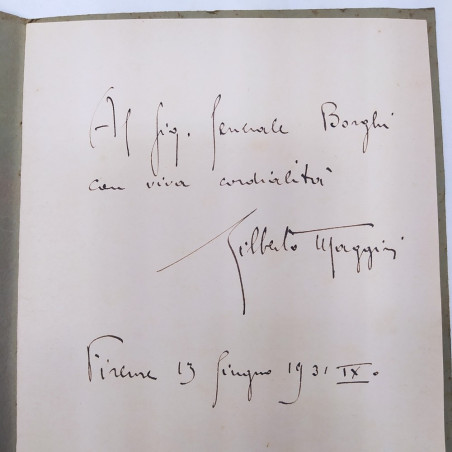 Al Sig. Generale Borghi
con viva cordialità
Gilberto Maggini
Firenze 13 Giugno 1931 IX.